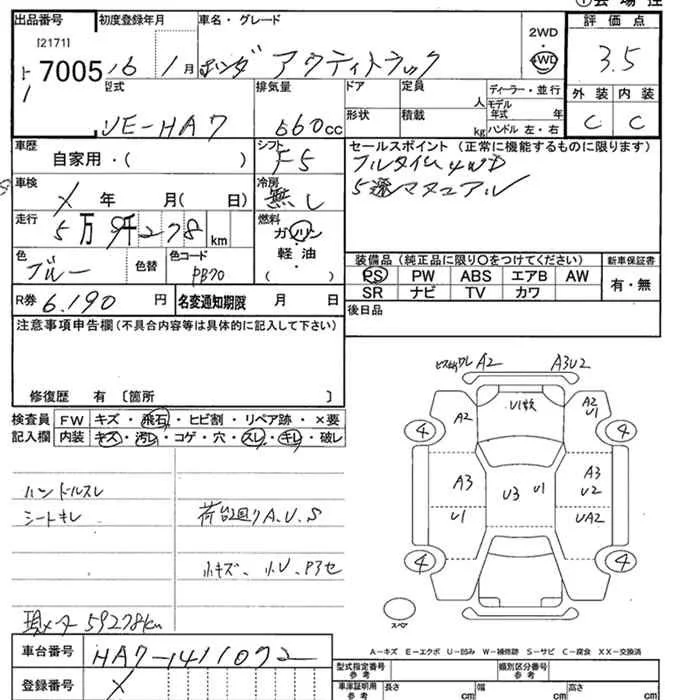 ①会 場 控
出品番号 初度登録年月 車名・グレード 評 価 点
[2171]
7005 16 1月 ホンダ アクティトラック 2WD 4WD 3.5
型式 排気量 ドア 定員 人 ディーラー・並行 外 装 内 装
UE-HA7 660cc 形状 積載 kg モデル年式 年 ハンドル 左・右 C C
車歴 自家用・( ) シフト F5 セールスポイント (正常に機能するものに限ります)
フルタイム4WD
車検 X 年 月( 日) 冷房 無し 5速マニュアル
走行 5万9千278km 燃料 ガソリン・軽 油・( )
色 ブルー 色替 色コード PB70
装備品 (純正品に限り○をつけてください) 新車保証書
PS PW ABS エアB AW 有・無
SR ナビ TV カワ
R券 6,190 円 名変通知期限 月 日 後日品
注意事項申告欄(不具合内容等は具体的に記入して下さい)
修復歴 有 [箇所 ]
検査員 FW キズ・飛石・ヒビ割・リペア跡・×要
記入欄 内装 キズ・汚レ・コゲ・穴・スレ・キレ・破レ
ハンドルスレ
シートキレ 荷台廻りA.U.S
小キズ、小U、P3セ
現メーター59278km
A2 A3U2
A2 U1軟 A2 U1
4 4
A3 U3 U1 A3 U2
U1 UA2
4 4
スペア
A-キズ E-エクボ U-凹み W-補修跡 S-サビ C-腐食 XX-交換済
車台番号 HA7-1411072
登録番号 X
型式指定番号 参考 類別区分番号 参考
車庫証明用 参考 長さ cm 幅 cm 高さ cm